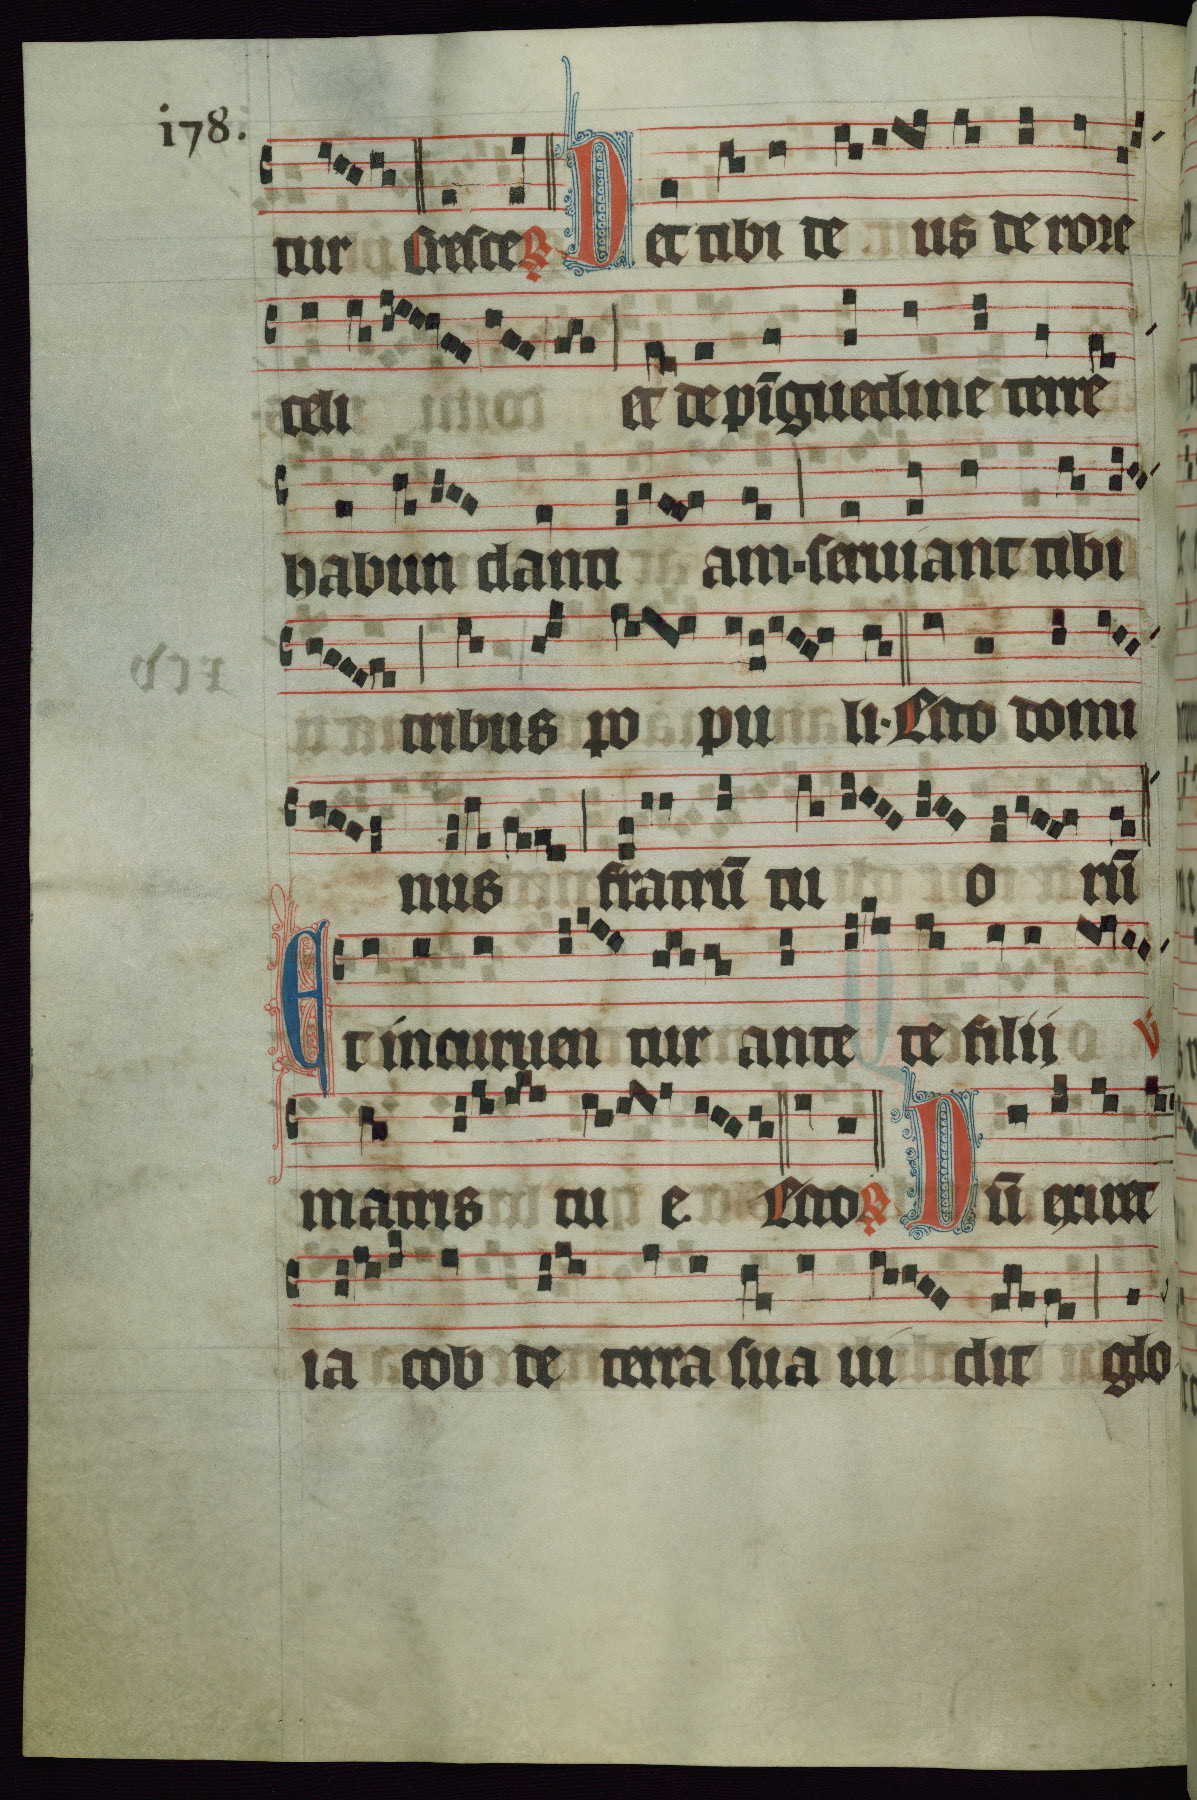 178.
tur Cresce ℟ Det tibi de us de rore
celi et de pīguedine terre
habun danti am. seruiant tibi
tribus po pu li. Esto domi
nus fratrū tu o rū
Et incuruen tur ante te filii ℣
matris tu e. Esto ℟ Dū exiret
ia cob de terra sua ui dit glo